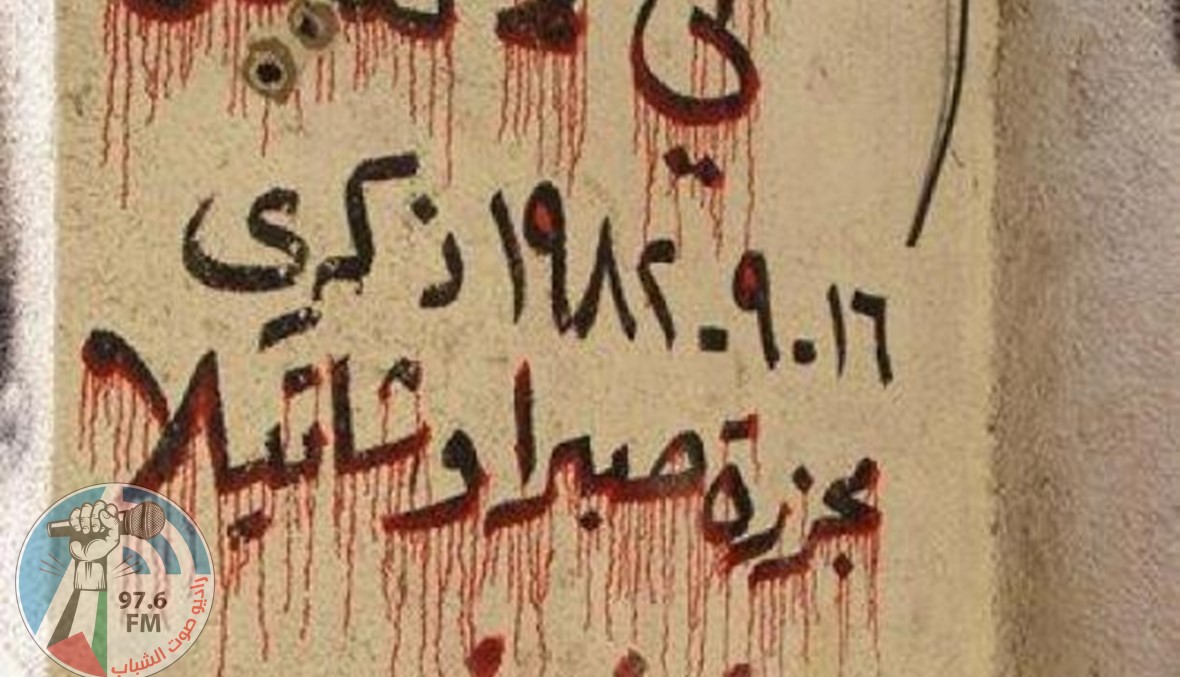 في
١٦.٩.١٩٨٢ ذكرى
مجزرة صبرا وشاتيلا
97.6
FM
راديو صوت الشباب